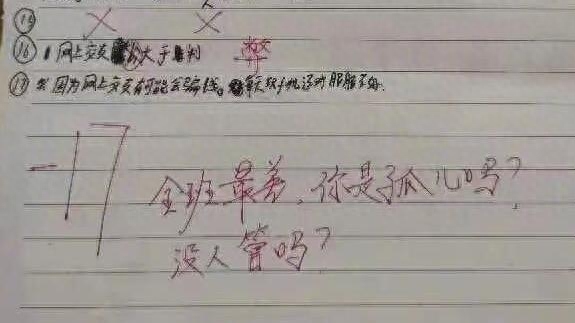 ⑮
⑯ 网上交友 大于利 弊
⑰ 因为网上交友有可能会骗钱。 玩手机还对眼睛不好.
-17
全班最差，你是孤儿吗？
没人管吗？